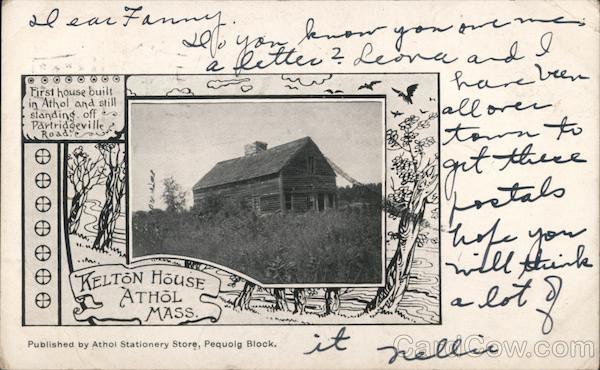 Dear Fanny.
Do you know you owe me
a letter? Leona and I
have been
all over
town to
get these
postals
hope you
will think
a lot of
it Nellie
First house built
in Athol and still
standing. off
Partridgeville
Road.
KELTON HOUSE
ATHOL
MASS.
Published by Athol Stationery Store, Pequoig Block.
CardCow.com